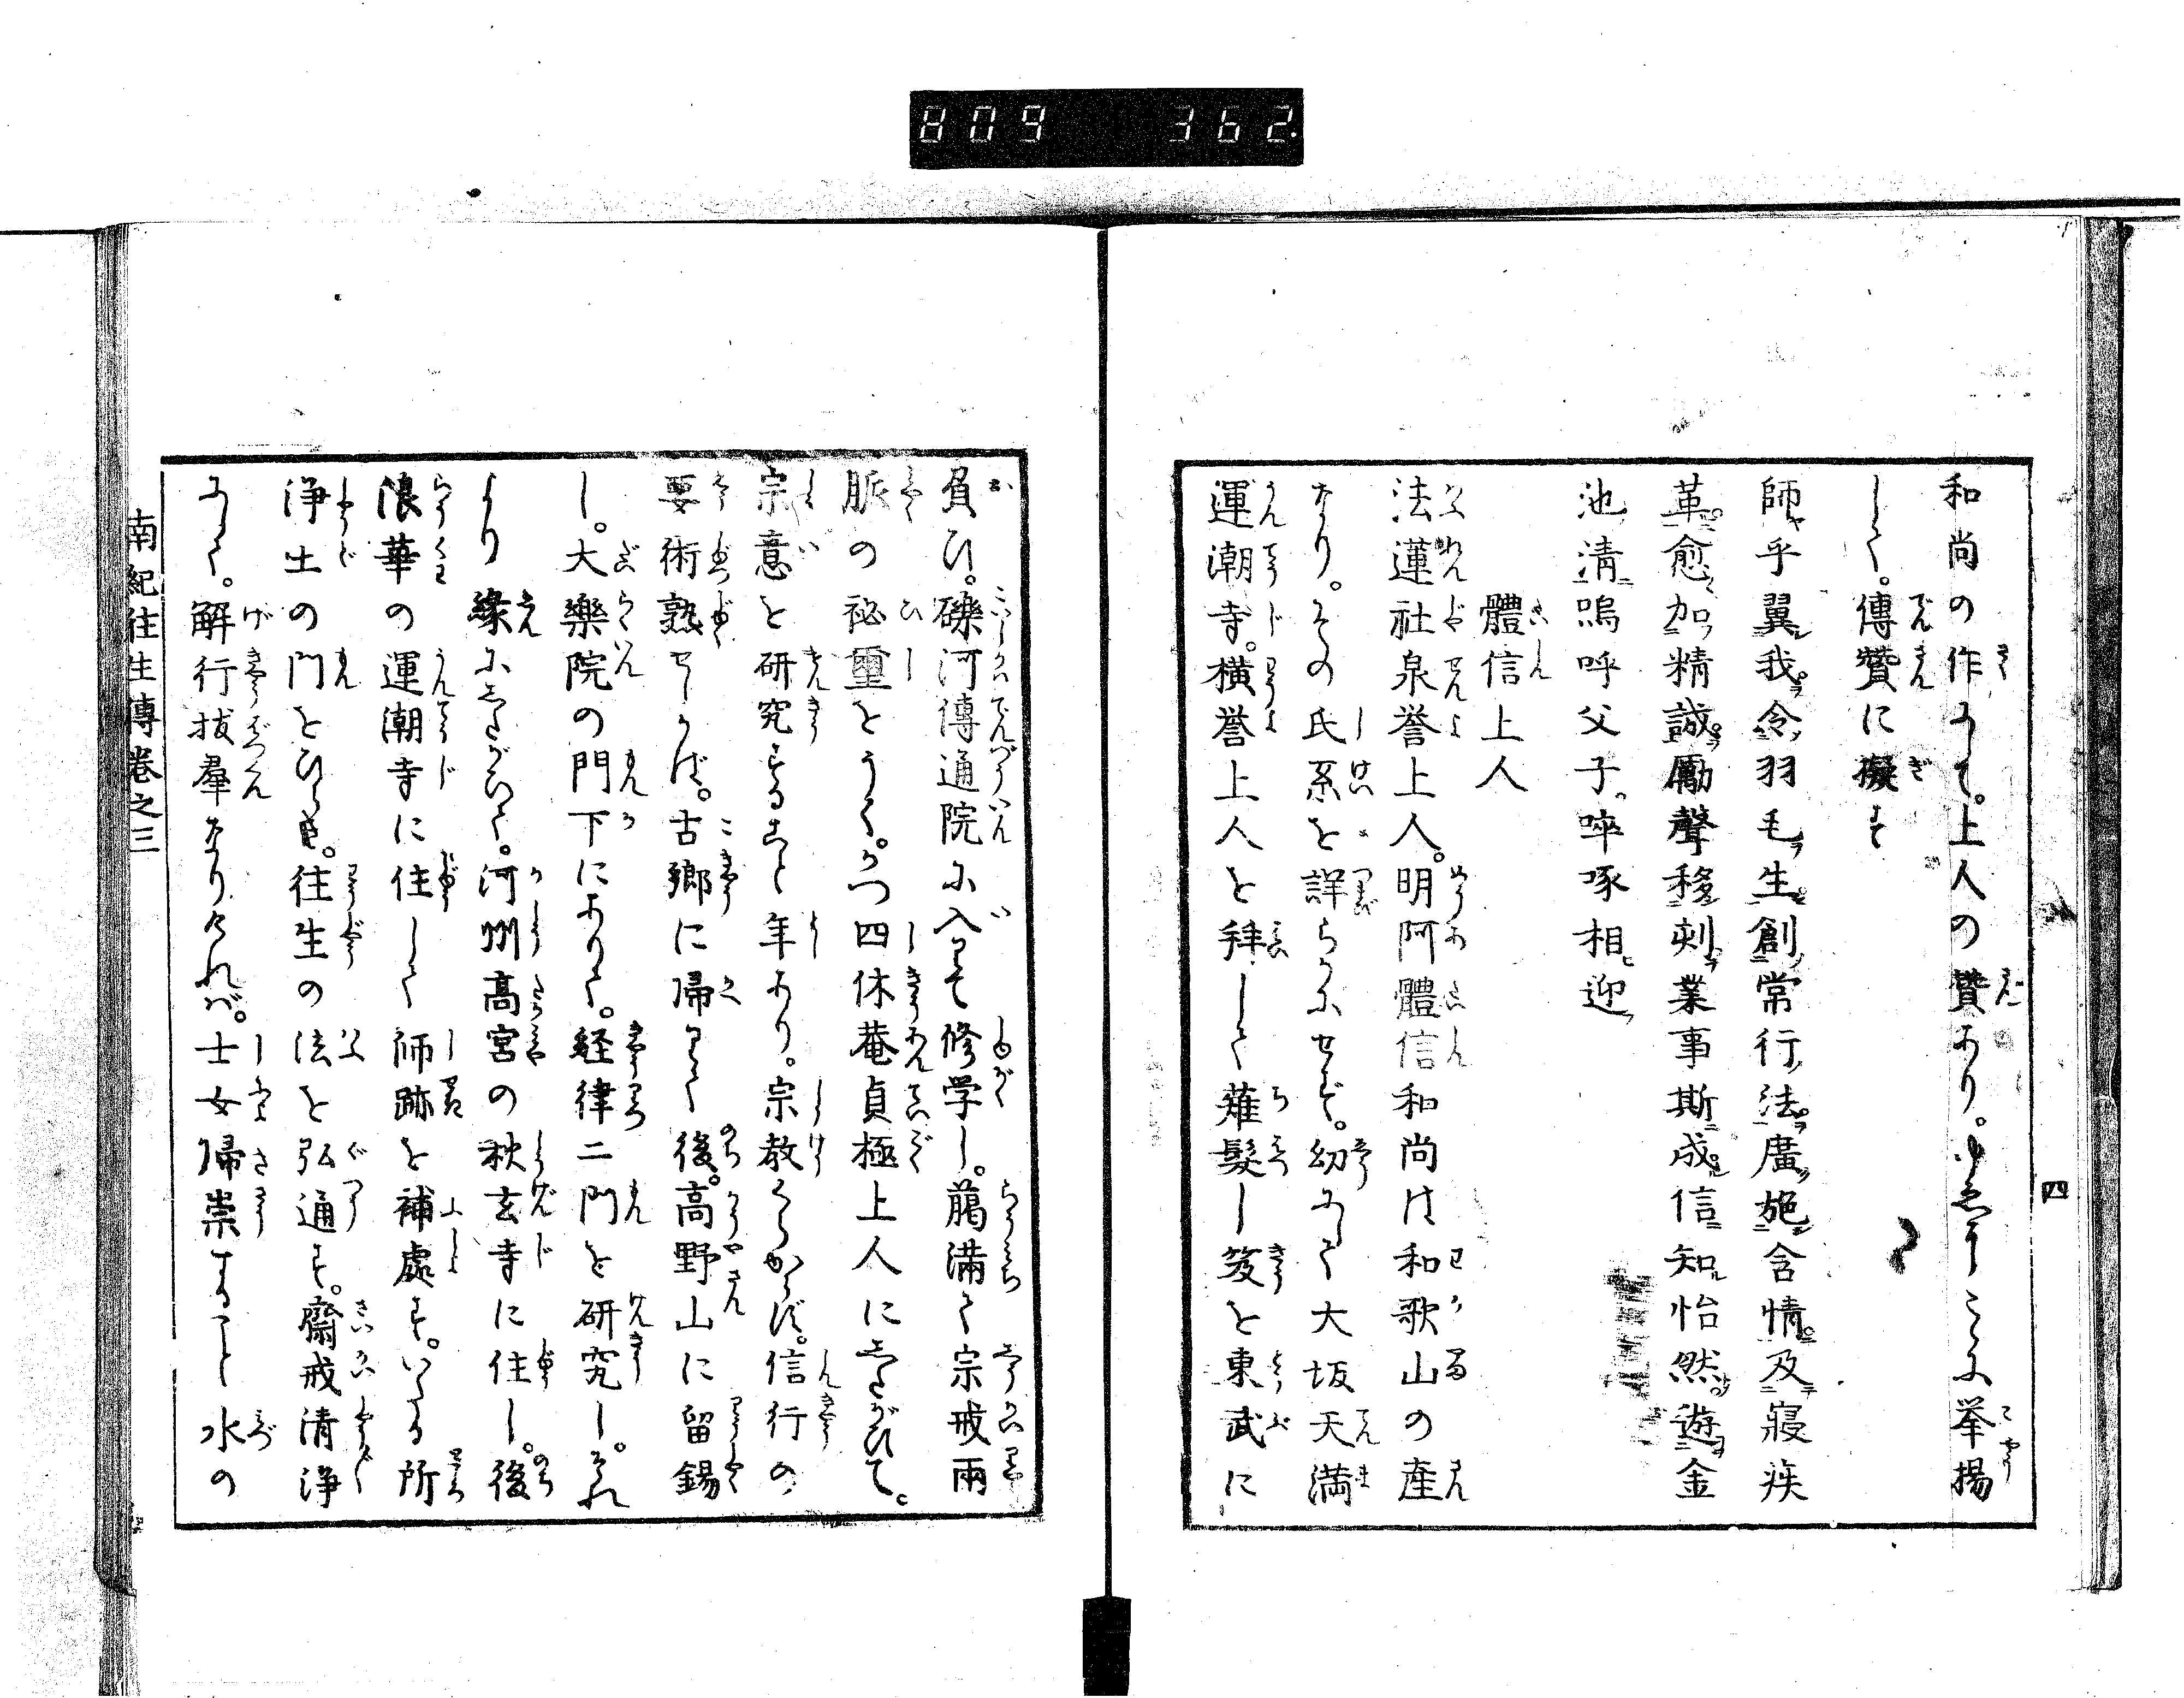 809 362.
四
和尚の作にて。上人の贊あり。ゆゑにこゝに挙揚
して。傳贊に擬す
師乎翼我令羽毛生創常行法廣施含情及寢疾
革愈加精誠勵聲移刻業事斯成信知怡然遊金
池清嗚呼父子啐啄相迎
體信上人
法蓮社泉誉上人。明阿體信和尚は和歌山の産
なり。その氏系を詳らかにせず。幼にして大坂天満
運潮寺。横誉上人を拜して薙髮し笈を東武に
負ひ。礫河傳通院に入りて修学し。﨟満て宗戒兩
脈の祕璽をうく。かつ四休菴貞極上人にしたがひて。
宗意を研究すること年あり。宗教くらからず。信行の
要術熟せしかば。古郷に帰りて後。高野山に留錫
し。大樂院の門下にありて。経律二門を研究し。それ
より緣にしたがひて。河州髙宮の秋玄寺に住し。後
浪華の運潮寺に住して師跡を補處す。いたる所
浄土の門をひらき。往生の法を弘通す。齋戒清浄
にして。解行拔羣なりければ。士女帰崇すること水の
南紀往生傳卷之三